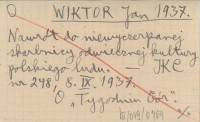 Q WIKTOR Jan 1937.
Nawrót do niewyczerpanej
skarbnicy odwiecznej kultury
polskiego ludu. — IKC
nr 248, 8. IX. 1937.
O „Tygodniu Gór".